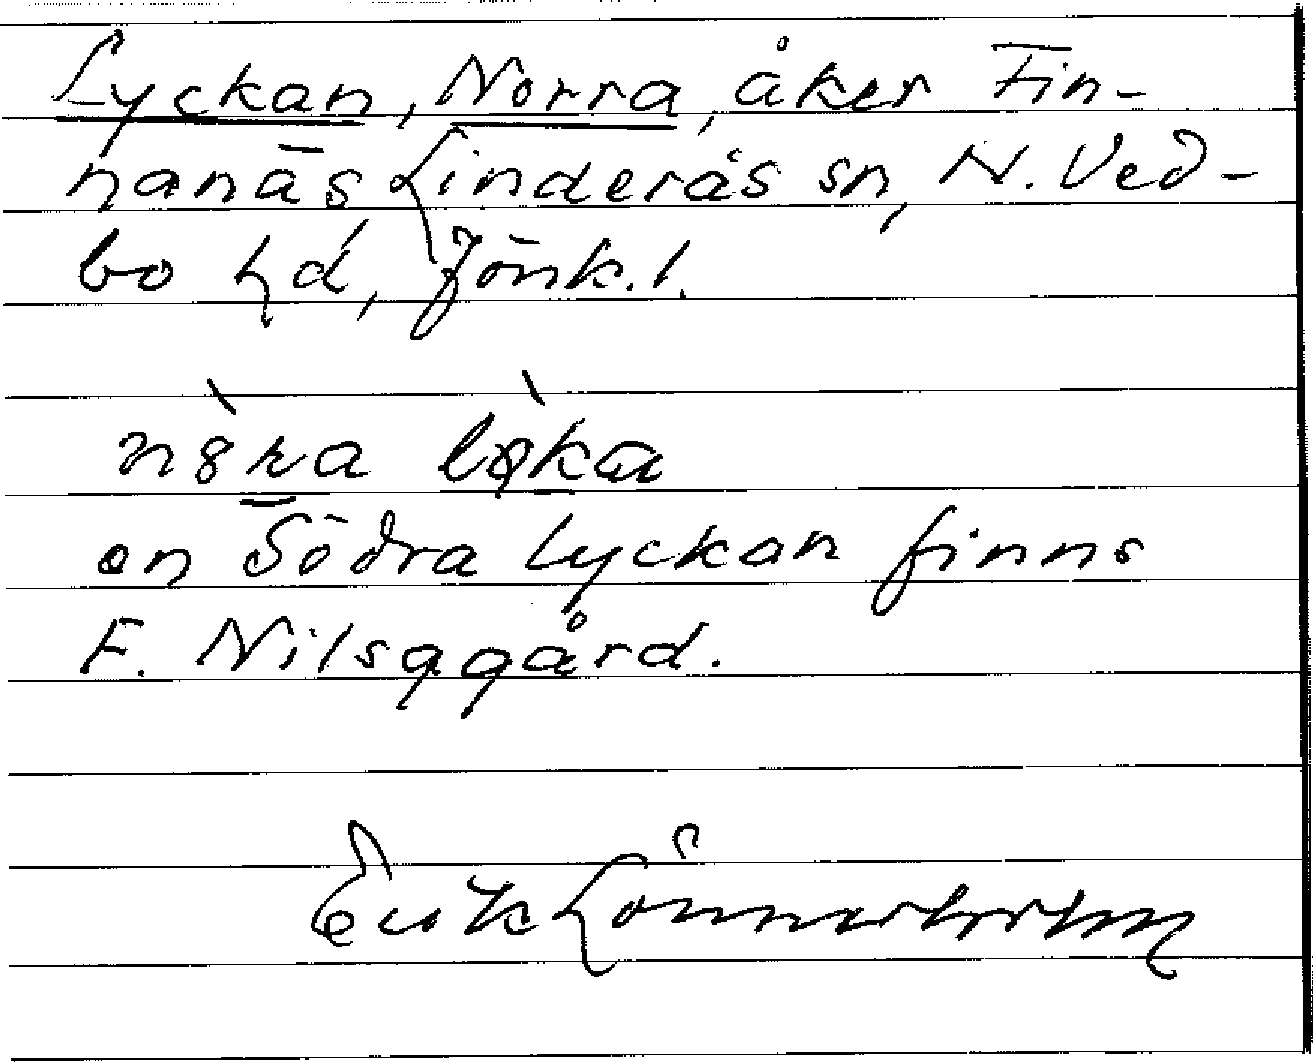 Lyckan, Norra, åker Fin-
nanäs, Linderås sn, N. Ved-
bo hd, Jönk. l.
en Södra Lyckan finns
F. Nilsagård.
Erik Lönnerholm